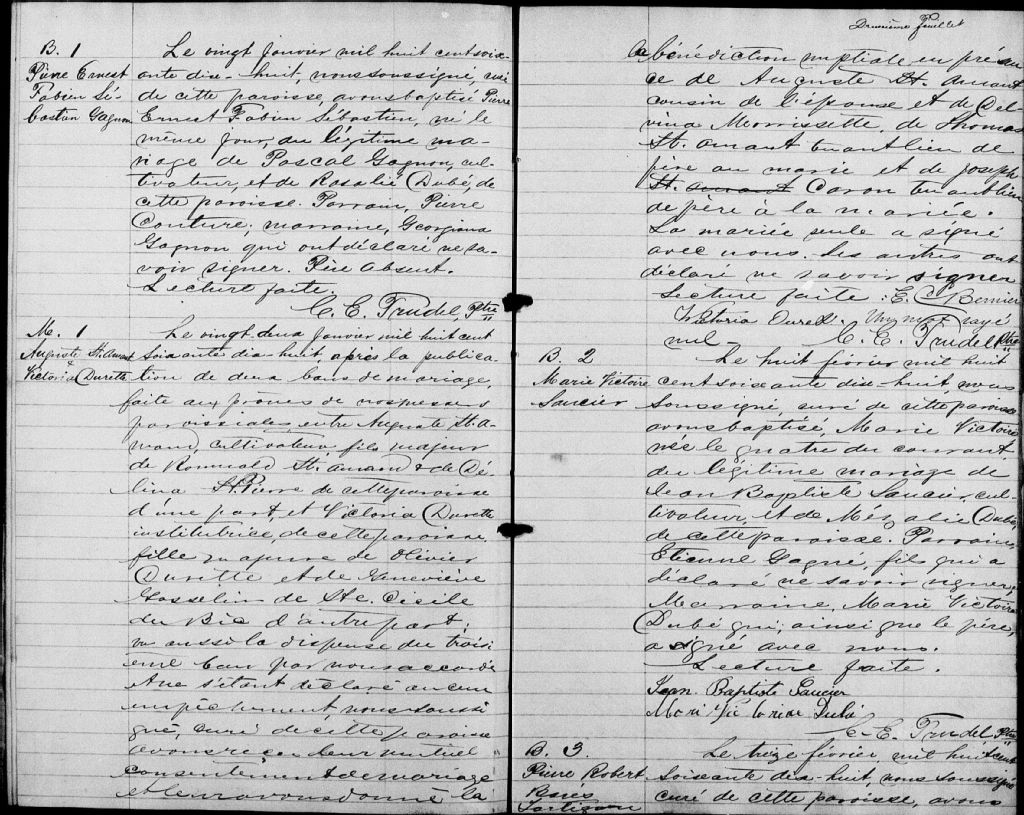 B. 1
Pierre Ernest
Fabien Sé-
bastien Gagnon
Le vingt Janvier mil huit cent soix-
ante dix-huit, nous soussigné, curé
de cette paroisse, avons baptisé Pierre
Ernest Fabien Sébastien, né le
même jour, du légitime ma-
riage de Pascal Gagnon, cul-
tivateur, et de Rosalie Dubé, de
cette paroisse. Parrain, Pierre
Couture; marraine, Georgiana
Gagnon qui ont déclaré ne sa-
voir signer. Père absent.
Lecture faite.
C. E. Trudel Ptre
M. 1
Auguste St. Amant
&
Victoria Durette
Le vingt deux Janvier mil huit cent
soixante dix-huit, après la publica-
tion de deux bans de mariage,
faite aux prones de nos messes
paroissiales entre Auguste St. A-
mand, cultivateur, fils majeur
de Romuald St. Amand & de Dé-
lina St. Pierre de cette paroisse
d'une part, et Victoria Durette
institutrice, de cette paroisse,
fille majeure de Olivier
Durette et de Geneviève
Gosselin de Ste. Cécile
du Bic d'autre part;
vu aussi la dispense du troisi
ème ban par nous accordé
et ne s'étant déclaré aucun
empêchement, nous soussi
gné, curé de cette paroisse
avons reçu leur mutuel
consentement de mariage
et leur avons donné la
Deuxième feuillet
bénédiction nuptiale en présen
ce de Auguste St. Amant
cousin de l'épouse et de Del
vina Morrissette, de Thomas
St. Amant tenant lieu de
père au marié et de Joseph
St. Amant Caron tenant lieu
de père à la mariée.
La mariée seule a signé
avec nous. Les autres ont
déclaré ne savoir signer
Lecture faite : E. C. Bernier
Victoria Durett. Un mot rayé
nul C. E. Trudel Ptre
B. 2
Marie Victoire
Saucier
Le huit février mil huit
cent soixante dix-huit, nous
soussigné, curé de cette paroisse
avons baptisé, Marie Victoire
née le quatre du courant
du légitime mariage de
Jean Baptiste Saucier, cul-
tivateur, et de Dubé,
de cette paroisse. Parrain,
Etienne Gagné, fils qui a
déclaré ne savoir signer;
Marraine, Marie Victoire
Dubé qui, ainsi que le père,
a signé avec nous.
Lecture faite.
Jean Baptiste Saucier
Mari Victorine Dubé
C. E. Trudel Ptre
B. 3
Pierre Robert
Le treize février, mil huit cent
soixante dix-huit, nous soussigné
curé de cette paroisse, avons